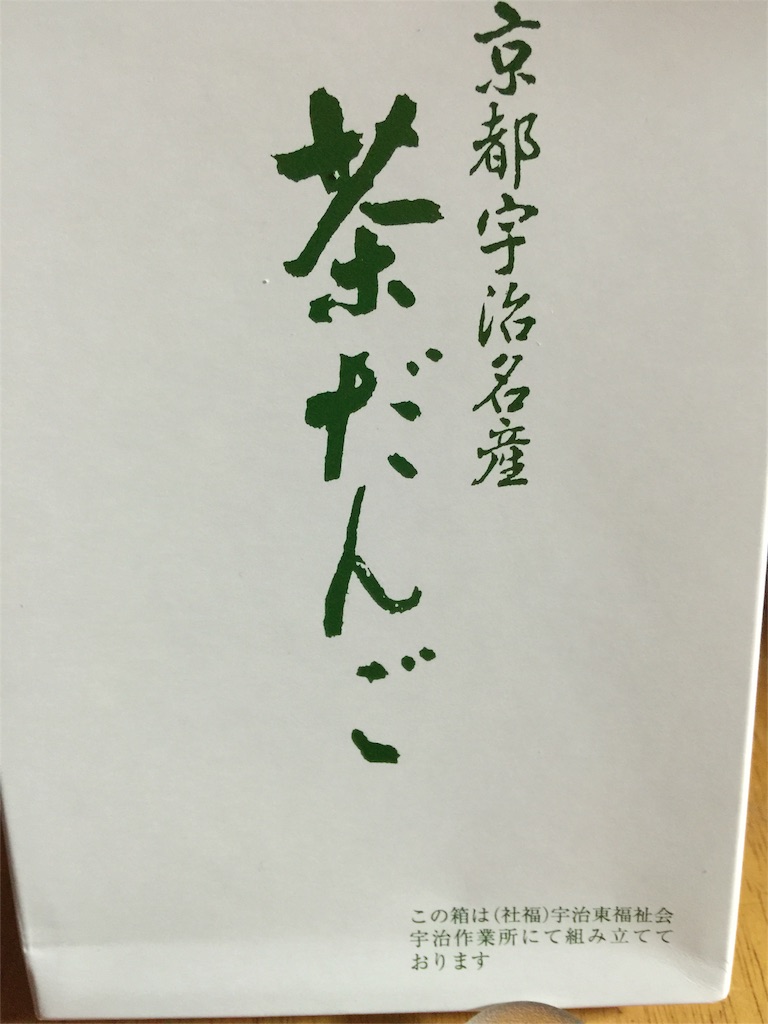 京都宇治名産
茶だんご
この箱は(社福)宇治東福祉会
宇治作業所にて組み立てて
おります